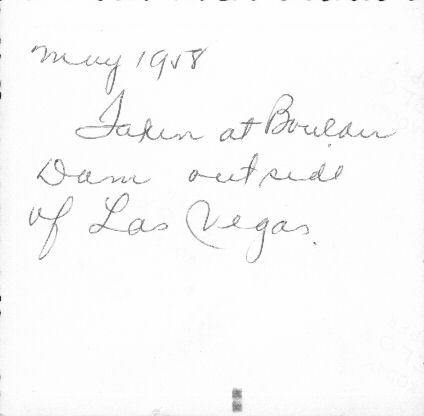 May 1958
Taken at Boulder
Dam outside
of Las Vegas.